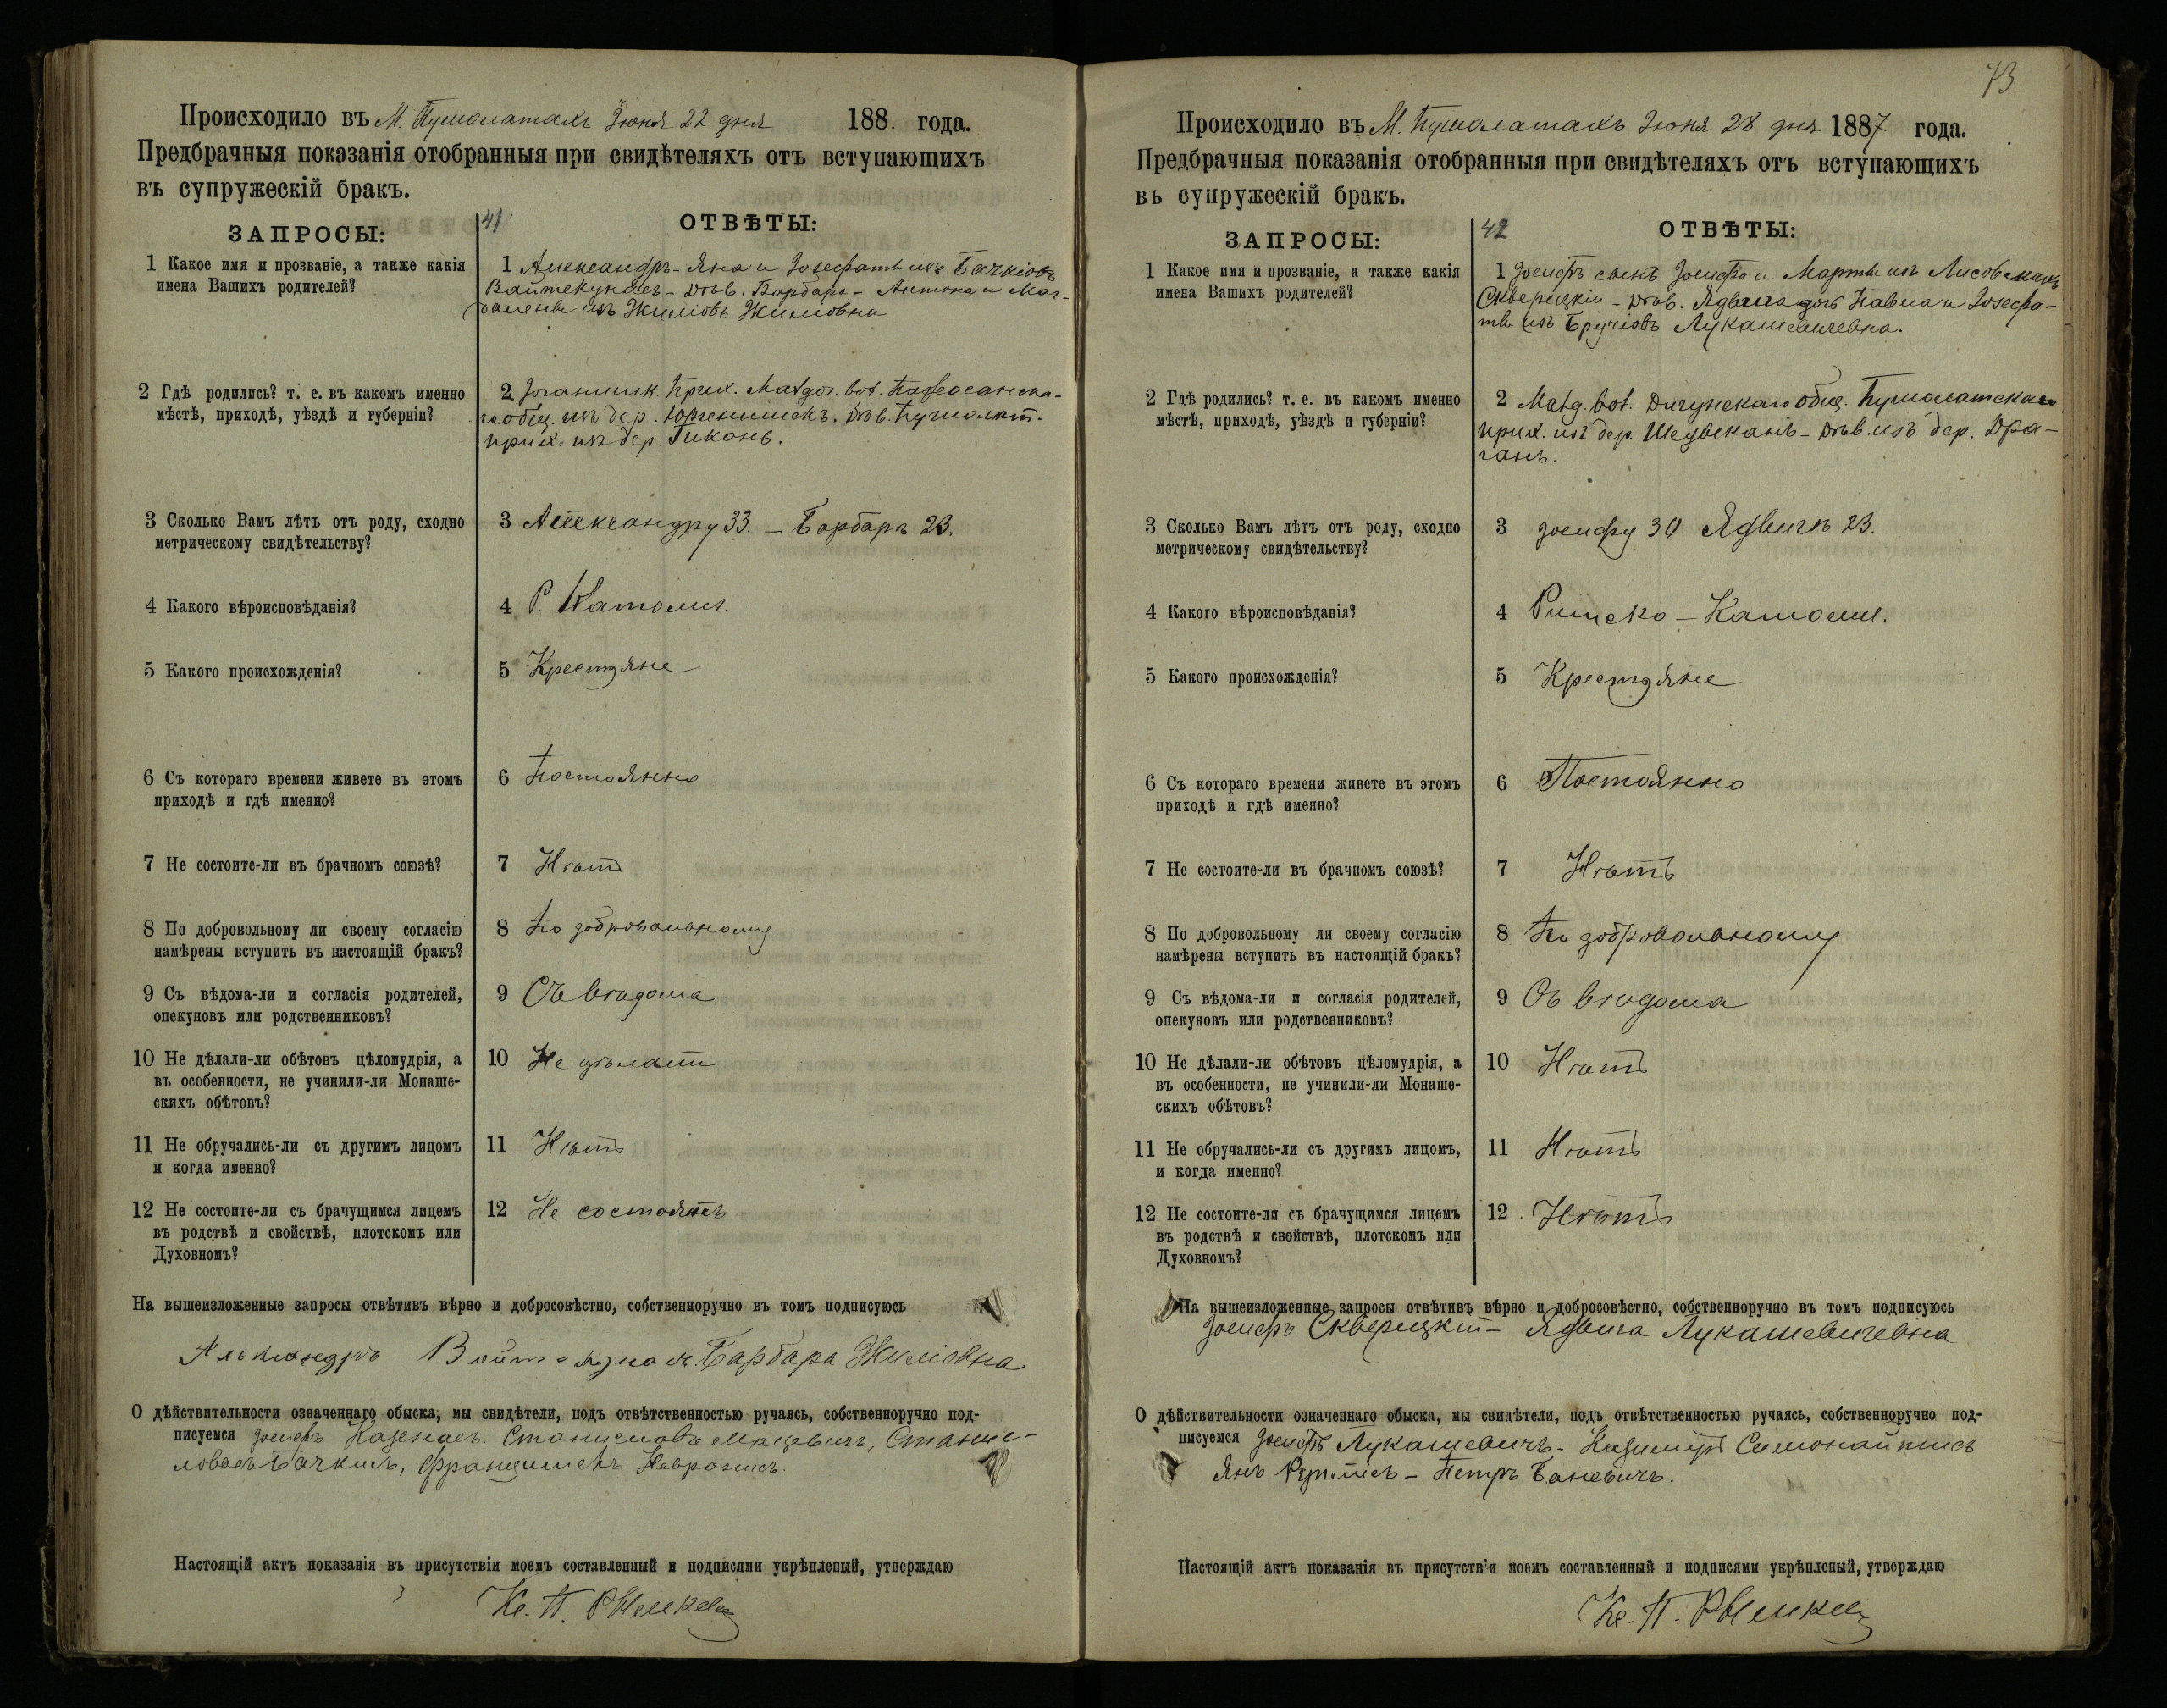 Происходило въ М. Пушолатахъ Іюня 22 дня 188 . года.
Предбрачныя показанія отобранныя при свидѣтеляхъ отъ вступающихъ
въ супружескій бракъ.
41.
ЗАПРОСЫ:
ОТВѢТЫ:
1 Какое имя и прозваніе, а также какія
имена Вашихъ родителей?
1 Александръ - Яна и Іозефаты изъ Бачкіовъ
Войтекунасъ - дѣв. Барбара - Антона и Маг-
далены изъ Жиліовъ Жиліовна
2 Гдѣ родились? т. е. въ какомъ именно
мѣстѣ, приходѣ, уѣздѣ и губерніи?
2. прих. вол.
го общ. изъ дер. дѣв. Пушолат.
прих. изъ дер. Гиконь.
3 Сколько Вамъ лѣтъ отъ роду, сходно
метрическому свидѣтельству?
3 Александру 33. - Барбарѣ 23.
4 Какого вѣроисповѣданія?
4 Р. Католич.
5 Какого происхожденія?
5 Крестьяне
6 Съ котораго времени живете въ этомъ
приходѣ и гдѣ именно?
6 Постоянно
7 Не состоите-ли въ брачномъ союзѣ?
7 Нѣтъ
8 По добровольному ли своему согласію
намѣрены вступить въ настоящій бракъ?
8 По добровольному
9 Съ вѣдома-ли и согласія родителей,
опекуновъ или родственниковъ?
9 Съ вѣдома
10 Не дѣлали-ли обѣтовъ цѣломудрія, а
въ особенности, не учинили-ли Монаше-
скихъ обѣтовъ?
10 Не дѣлали
11 Не обручались-ли съ другимъ лицомъ
и когда именно?
11 Нѣтъ
12 Не состоите-ли съ брачущимся лицемъ
въ родствѣ и свойствѣ, плотскомъ или
Духовномъ?
12 Не состоятъ
На вышеизложенные запросы отвѣтивъ вѣрно и добросовѣстно, собственноручно въ томъ подписуюсь
Александръ Барбара Жиліовна
О дѣйствительности означеннаго обыска, мы свидѣтели, подъ отвѣтственностью ручаясь, собственноручно под-
писуемся Іосифъ Казенасъ. Станиславъ Мацевичъ, Станис-
ловасъ Бачкисъ, Францишекъ
Настоящій актъ показанія въ присутствіи моемъ составленный и подписями укрѣпленый, утверждаю
Кс. П.
73
Происходило въ М. Пушолатахъ Іюня 28 дня 1887 года.
Предбрачныя показанія отобранныя при свидѣтеляхъ отъ вступающихъ
въ супружескій бракъ.
42
ЗАПРОСЫ:
ОТВѢТЫ:
1 Какое имя и прозваніе, а также какія
имена Вашихъ родителей?
1 Іосифъ сынъ Іосифа и Марты изъ Лисовскихъ
Скверецкій - дѣв. Ядвига дочь Павла и Іозефа-
ты изъ Бручіовъ Лукашевичевна.
2 Гдѣ родились? т. е. въ какомъ именно
мѣстѣ, приходѣ, уѣздѣ и губерніи?
2 вол. общ. Пушолатскаго
прих. изъ дер. - дѣв. изъ дер. Дра-
ганъ.
3 Сколько Вамъ лѣтъ отъ роду, сходно
метрическому свидѣтельству?
3 Іосифу Ядвигѣ 23.
4 Какого вѣроисповѣданія?
4 Римско - Католич.
5 Какого происхожденія?
5 Крестьяне
6 Съ котораго времени живете въ этомъ
приходѣ и гдѣ именно?
6 Постоянно
7 Не состоите-ли въ брачномъ союзѣ?
7 Нѣтъ
8 По добровольному ли своему согласію
намѣрены вступить въ настоящій бракъ?
8 По добровольному
9 Съ вѣдома-ли и согласія родителей,
опекуновъ или родственниковъ?
9 Съ вѣдома
10 Не дѣлали-ли обѣтовъ цѣломудрія, а
въ особенности, не учинили-ли Монаше-
скихъ обѣтовъ?
10 Нѣтъ
11 Не обручались-ли съ другимъ лицомъ,
и когда именно?
11 Нѣтъ
12 Не состоите-ли съ брачущимся лицемъ
въ родствѣ и свойствѣ, плотскомъ или
Духовномъ?
12 . Нѣтъ
На вышеизложенные запросы отвѣтивъ вѣрно и добросовѣстно, собственноручно въ томъ подписуюсь
Іосифъ Скверецкій - Ядвига Лукашевичевна
О дѣйствительности означеннаго обыска, мы свидѣтели, подъ отвѣтственностью ручаясь, собственноручно под-
писуемся Іосифъ Лукашевичъ - Казимиръ
Янъ - Петръ Баневичъ.
Настоящій актъ показанія въ присутствіи моемъ составленный и подписями укрѣпленый, утверждаю
Кс. П.